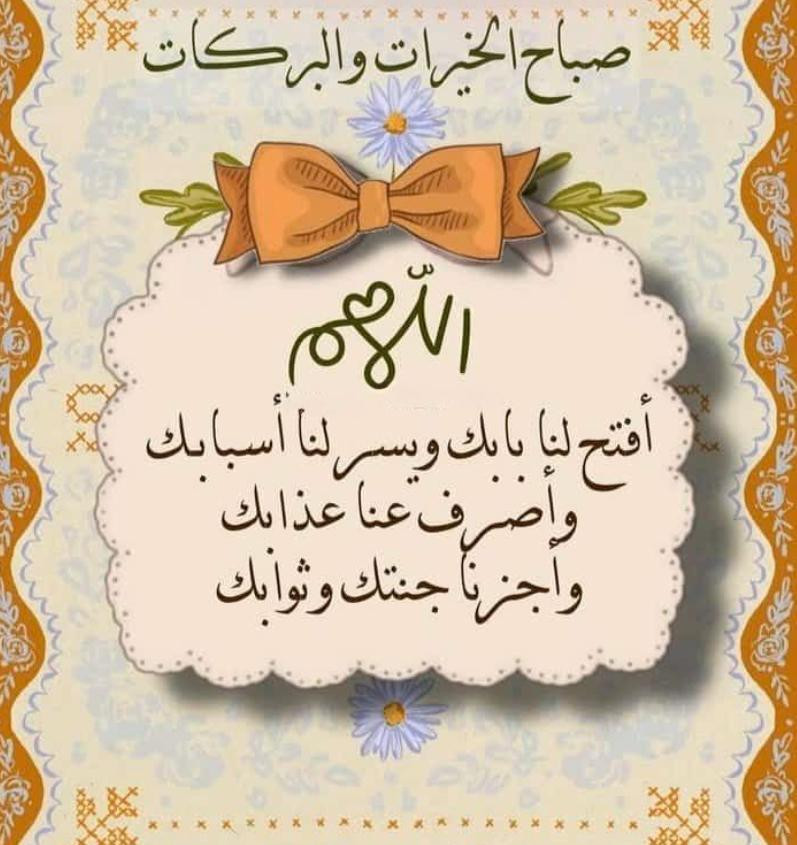 صباح الخيرات والبركات
اللهم
أفتح لنا بابك ويسر لنا أسبابك
وأضرف عنا عذابك
وأجزنا جنتك وثوابك